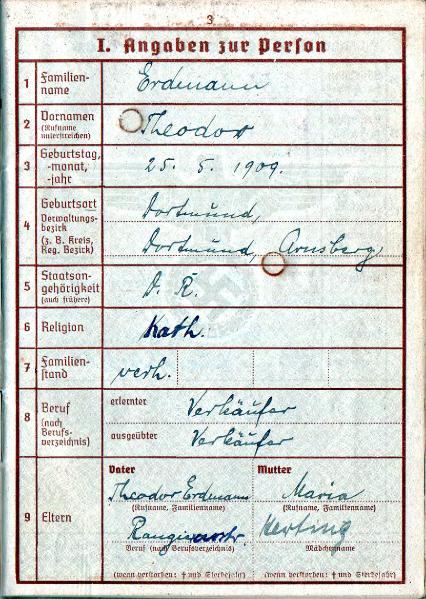 3
I. Angaben zur Person
1 Familien-
name
Erdmann
2 Vornamen
(Rufname
unterstreichen)
Theodor
3 Geburtstag,
-monat,
-jahr
25. 5. 1909.
4 Geburtsort
Verwaltungs-
bezirk
(z. B. Kreis,
Reg. Bezirk)
Dortmund,
Dortmund, Arnsberg
5 Staatsan-
gehörigkeit
(auch frühere)
D. R.
6 Religion
kath.
7 Familien-
stand
verh.
8 Beruf
(nach
Berufs-
verzeichnis)
erlernter
Verkäufer
ausgeübter
Verkäufer
9 Eltern
Vater
Theodor Erdmann
(Rufname, Familienname)
Beruf (nach Berufsverzeichnis)
(wenn verstorben: † und Sterbejahr)
Mutter
Maria
(Rufname, Familienname)
Herting
Mädchenname
(wenn verstorben: † und Sterbejahr)